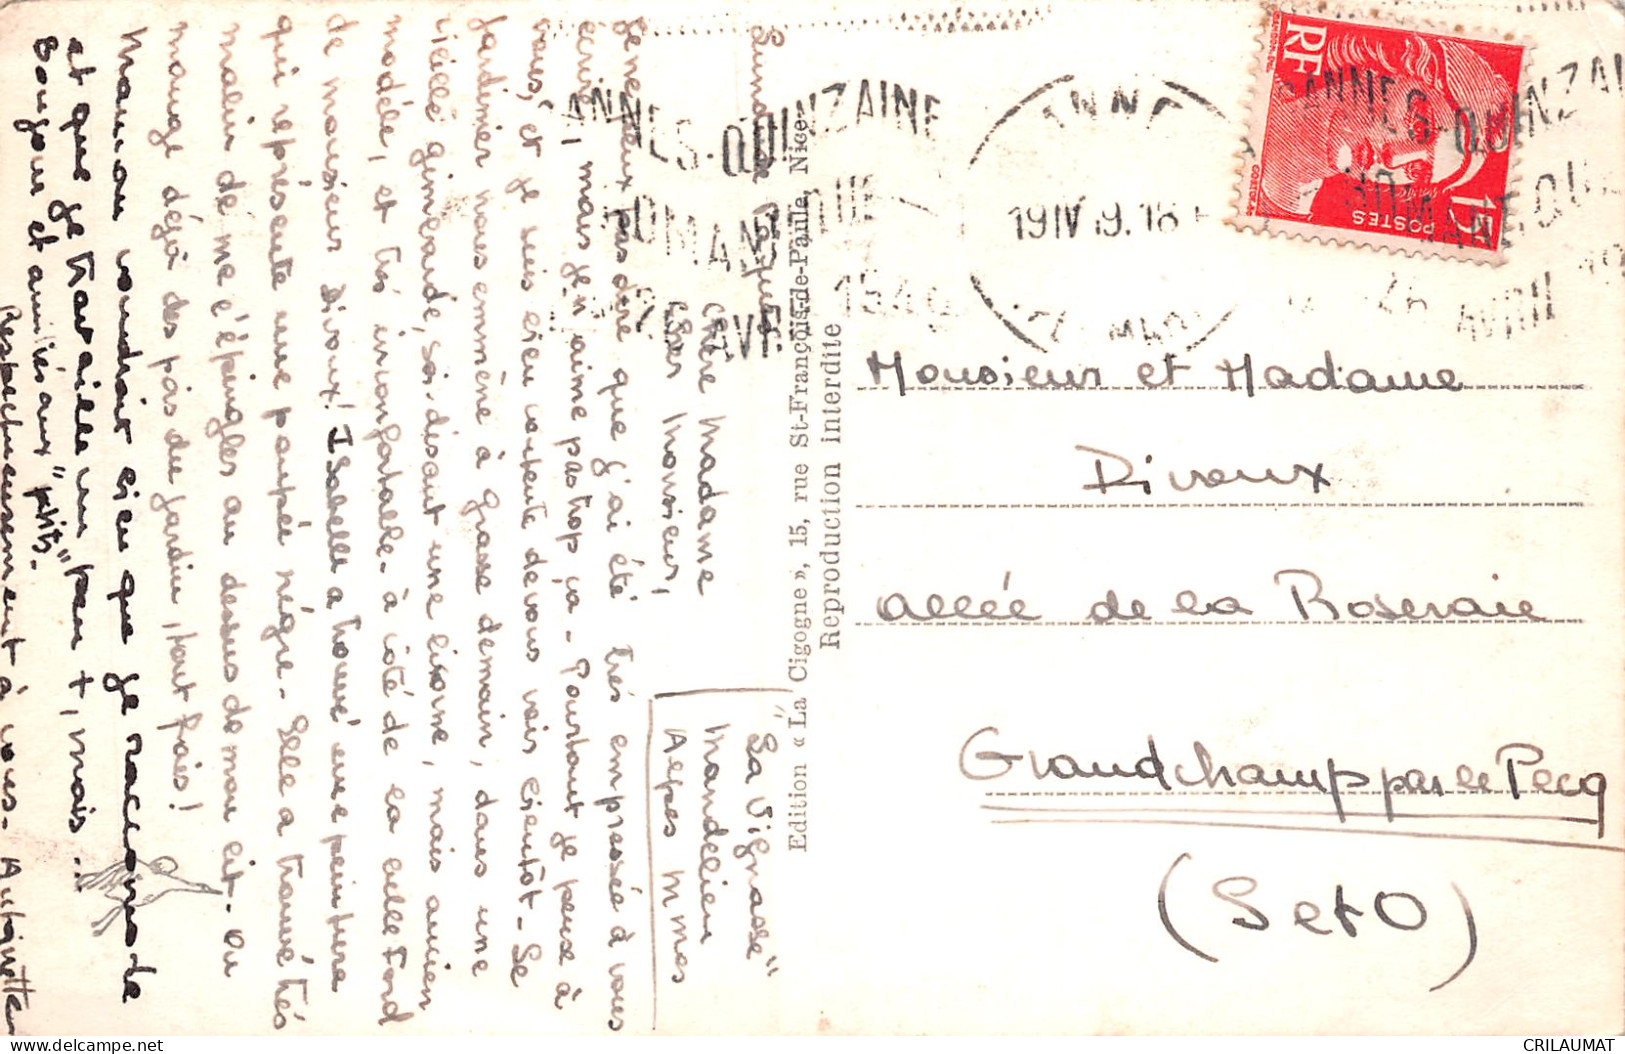 Lundi de Pâques
"La Vignasse"
Mandelieu
Alpes Mmes
Chère Madame
Cher Monsieur,
Je ne peux pas dire que j'ai été très empressée à vous
écrire, mais je n'aime pas trop ça - Pourtant je pense à
vous, et je suis bien contente de vous voir bientôt - Le
jardinier nous emmène à Grasse demain, dans une
vieille guimbarde, soi-disant une licorne, mais ancien
modèle, et très inconfortable - à côté de la celle Ford
de monsieur Divoux! Isabelle a trouvé une peinture
qui représente une poupée nègre - Elle a trouvé très
malin de me l'épingler au dessus de mon lit - On
mange déjà des pois du jardin, tout frais!
Maman voudrait bien que je raccourcde
et que je travaille un peu +, mais...
Bonjour et amitiés aux "petits" -
Respectueusement à vous - Antoinette
Edition « La Cigogne », 15, rue St-François-de-Paule, Nice
Reproduction interdite
CANNES-QUINZAINE
ROMANTIQUE
AVRIL 1949
19 IV 49. 18
RF
POSTES
15F
CANNES-QUINZAINE
ROMANTIQUE
AVRIL 19
Monsieur et Madame
Divoux
allée de la Roseraie
Grandchamp par le Pecq
(S et O)
CRILAUMAT